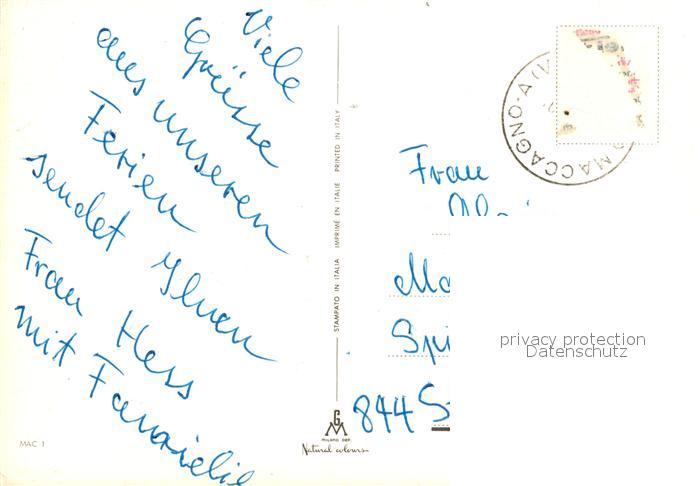 Viele
Grüsse
aus unseren
Ferien
sendet Ihnen
Frau Hess
mit Familie
MAC 1
STAMPATO IN ITALIA IMPRIMÉ EN ITALIE PRINTED IN ITALY
G
M
MILANO DEP.
Natural colours
MACCAGNO · A (V
Frau
Ma
Spi
844 S
privacy protection
Datenschutz